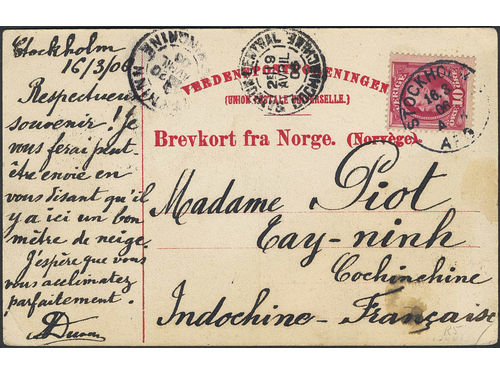 Stockholm
16/3/06
Respectueux
souvenir! Je
vous ferai peut-
être envie en
vous disant qu'il
y a ici un bon
mètre de neige.
J'espère que vous
vous acclimatez
parfaitement.
VERDENSPOSTFORENINGEN
(UNION POSTALE UNIVERSELLE).
Brevkort fra Norge. (Norvège).
Madame Piot
Tay-ninh
Cochinchine
Indochine-Française
STOCKHOLM
16 3
06
SVERIGE
10
CENTRAL
AVRIL
06